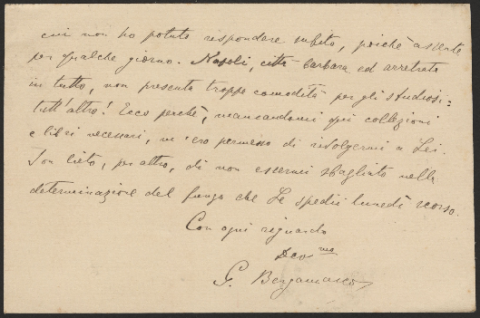 cui non ho potuto rispondere subito, poichè assente
per qualche giorno. Napoli, città barbara ed arretrata
in tutto, non presenta troppe comodità per gli studiosi:
tutt'altro! Ecco perchè, mancandomi qui collezioni
e libri necessari, m'ero permesso di rivolgermi a Lei.
Son lieto, per altro, di non essermi sbagliato nella
determinazione del fungo che Le spedii lunedì scorso.
Con ogni riguardo
Dev.mo
G. Bergamasco